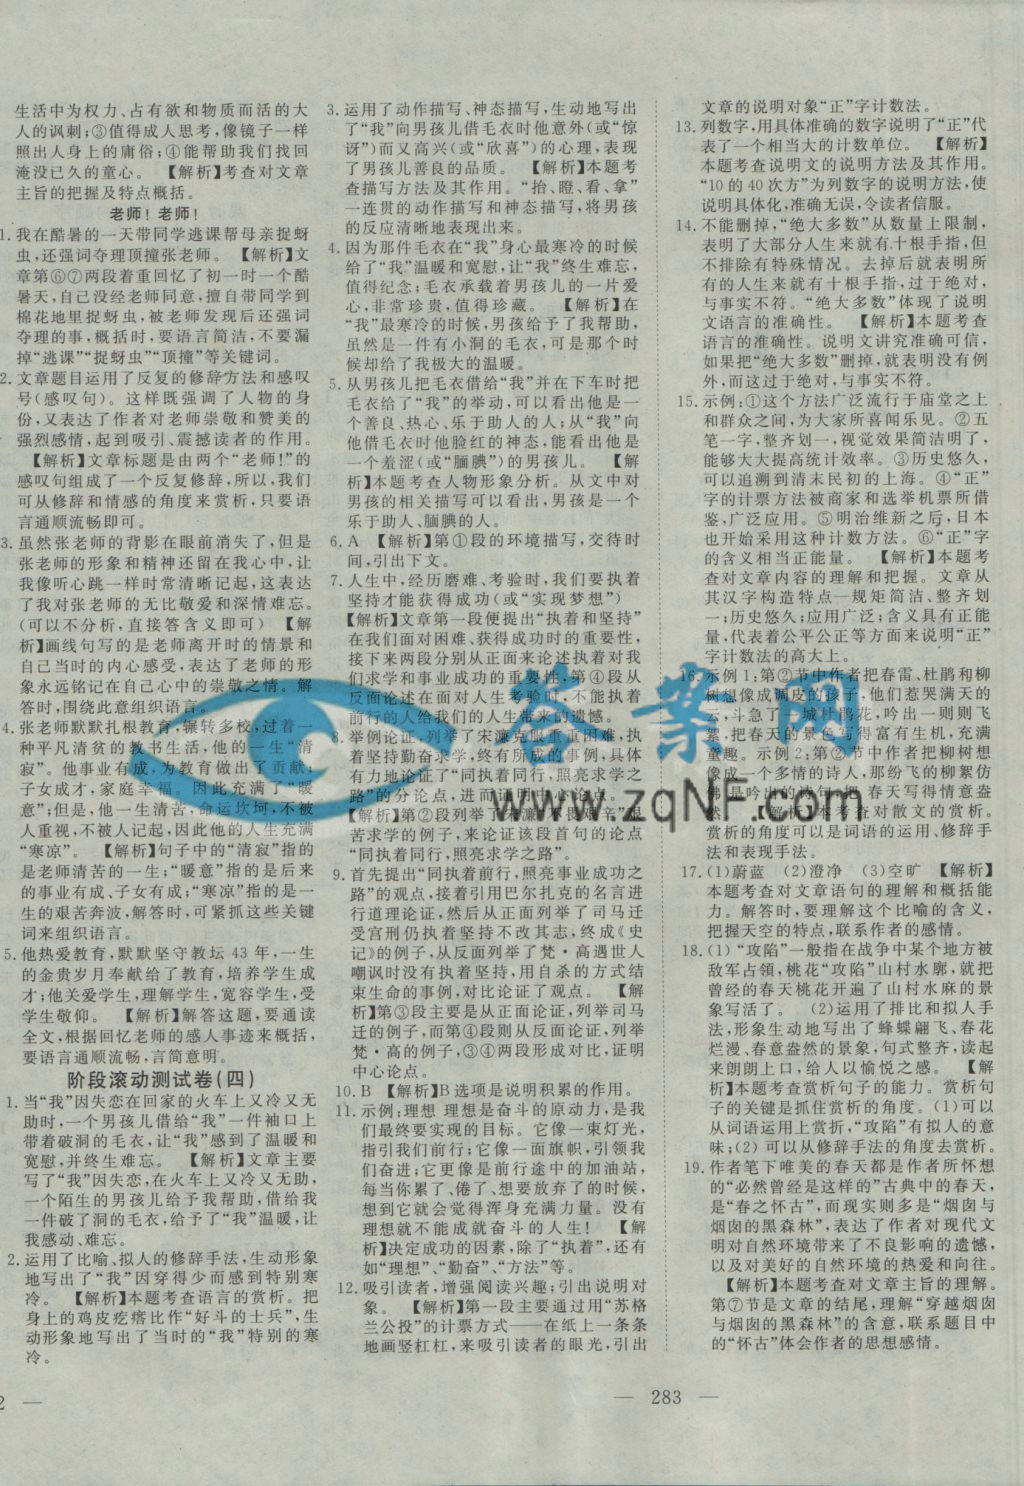 生活中为权力、占有欲和物质而活的大
人的讽刺;③值得成人思考,像镜子一样
照出人身上的庸俗;④能帮助我们找回
淹没已久的童心。 【解析】考查对文章
主旨的把握及特点概括。
老师!老师!
1. 我在酷暑的一天带同学逃课帮母亲捉蚜
虫,还强词夺理顶撞张老师。 【解析】文
章第⑥⑦两段着重回忆了初一时一个酷
暑天,自己没经老师同意,擅自带同学到
棉花地里捉蚜虫,被老师发现后还强词
夺理的事,概括时,要语言简洁,不要漏
掉“逃课”“捉蚜虫”“顶撞”等关键词。
2. 文章题目运用了反复的修辞方法和感叹
号(感叹句)。这样既强调了人物的身
份,又表达了作者对老师崇敬和赞美的
强烈感情,起到吸引、震撼读者的作用。
【解析】文章标题是由两个“老师!”的
感叹句组成了一个反复修辞,所以,我们
可从修辞和情感的角度来赏析,只要语
言通顺流畅即可。
3. 虽然张老师的背影在眼前消失了,但是
张老师的形象和精神还留在我心中,让
我像听心跳一样时常清晰记起,这表达
了我对张老师的无比敬爱和深情难忘。
(可以不分析,直接答含义即可) 【解
析】画线句写的是老师离开时的情景和
自己当时的内心感受,表达了老师的形
象永远铭记在自己心中的崇敬之情。解
答时,围绕此意组织语言。
4. 张老师默默扎根教育,辗转多校,过着一
种平凡清贫的教书生活,他的一生“清
寂”。他事业有成,为教育做出了贡献;
子女成才,家庭幸福。因此充满了“暖
意”;但是,他一生清苦,命运坎坷,不被
人重视,不被人记起,因此他的人生充满
“寒凉”。 【解析】句子中的“清寂”指的
是老师清苦的一生;“暖意”是指的是后来
的事业有成、子女有成;“寒凉”指的是一
生的艰苦奔波,解答时,可紧抓这些关键
词来组织语言。
5. 他热爱教育,默默坚守教坛 43 年,一生
的金贵岁月奉献给了教育,培养学生成
才;他关爱学生,理解学生,宽容学生,受
学生敬仰。 【解析】解答这题,要通读
全文,根据回忆老师的感人事迹来概括,
要语言通顺流畅,言简意明。
阶段滚动测试卷(四)
1. 当“我”因失恋在回家的火车上又冷又无
助时,一个男孩儿借给“我”一件袖口上
带着破洞的毛衣,让“我”感到了温暖和
宽慰,并终生难忘。 【解析】文章主要
写了“我”因失恋,在火车上又冷又无助,
一个陌生的男孩儿给予我帮助,借给我
一件破了洞的毛衣,给予了“我”温暖,让
我感动、难忘。
2. 运用了比喻、拟人的修辞手法,生动形象
地写出了“我”因穿得少而感到特别寒
冷。 【解析】本题考查语言的赏析。把
身上的鸡皮疙瘩比作“好斗的士兵”,生
动形象地写出了当时的“我”特别的寒
冷。
2 —
3. 运用了动作描写、神态描写,生动地写出
了“我”向男孩儿借毛衣时他意外(或“惊
讶”)而又高兴(或“欣喜”)的心理,表现
了男孩儿善良的品质。 【解析】本题考
查描写方法及其作用。“抬、瞪、看、拿”
一连贯的动作描写和神态描写,将男孩
的反应清晰地表现出来。
4. 因为那件毛衣在“我”身心最寒冷的时候
给了“我”温暖和宽慰,让“我”终生难忘,
值得纪念;毛衣承载着男孩儿的一片爱
心,非常珍贵,值得珍藏。 【解析】在
“我”最寒冷的时候,男孩给予了我帮助,
虽然是一件有小洞的毛衣,可是那个时
候却给了我极大的温暖。
5. 从男孩儿把毛衣借给“我”并在下车时把
毛衣给了“我”的举动,可以看出他是一
个善良、热心、乐于助人的人;从“我”向
他借毛衣时他脸红的神态,能看出他是
一个羞涩(或“腼腆”)的男孩儿。 【解
析】本题考查人物形象分析。从文中对
男孩的相关描写可以看出,男孩是一个
乐于助人、腼腆的人。
6. A 【解析】第①段的环境描写,交待时
间,引出下文。
7. 人生中,经历磨难、考验时,我们要执着
坚持才能获得成功(或“实现梦想”)
【解析】文章第一段便提出“执着和坚持”
在我们面对困难、获得成功时的重要性,
接下来两段分别从正面来论述执着对我
们求学和事业成功的重要,第④段从
反面论述在面对人生考验时,不能执着
前行的人给我们的人生带来的遗憾。
8. 举例论证,列举了宋濂克服重重困难,执
着坚持勤奋求学,终有所成的事例,具体
有力地论证了“同执着同行,照亮求学之
路”的分论点,进而证明中心论点。
【解析】第②段列举了宋濂不畏艰辛、艰
苦求学的例子,来论证该段首句的论点
“同执着同行,照亮求学之路”。
9. 首先提出“同执着前行,照亮事业成功之
路”的观点,接着引用巴尔扎克的名言进
行道理论证,然后从正面列举了司马迁
受宫刑仍执着坚持不改其志,终成《史
记》的例子,从反面列举了梵·高遇世人
嘲讽时没有执着坚持,用自杀的方式结
束生命的事例,对比论证了观点。 【解
析】第③段主要是从正面论证,列举司马
迁的例子,而第④段则从反面论证,列举
梵·高的例子,③④两段形成对比,证明
中心论点。
10. B 【解析】B选项是说明积累的作用。
11. 示例:理想 理想是奋斗的原动力,是我
们最终要实现的目标。它像一束灯光,
指引我们前行;它像一面旗帜,引领我
们奋进;它更像是前行途中的加油站,
每当你累了、倦了、想要放弃了的时候,
想到它就会觉得浑身充满力量。没有
理想就不能成就奋斗的人生! 【解
析】决定成功的因素,除了“执着”,还有
如“理想”、“勤奋”、“方法”等。
12. 吸引读者,增强阅读兴趣;引出说明对
象。 【解析】第一段主要通过用“苏格
兰公投”的计票方式——在纸上一条条
地画竖杠杠,来吸引读者的眼光,引出
— 283 —
文章的说明对象“正”字计数法。
13. 列数字,用具体准确的数字说明了“正”代
表了一个相当大的计数单位。 【解析】
本题考查说明文的说明方法及其作用。
“10的40次方”为列数字的说明方法,使
说明具体化,准确无误,令读者信服。
14. 不能删掉,“绝大多数”从数量上限制,
表明了大部分人生来就有十根手指,但
不排除有特殊情况。去掉后就表明所
有的人生来就有十根手指,过于绝对,
与事实不符。“绝大多数”体现了说明
文语言的准确性。 【解析】本题考查语
言的准确性。说明文讲究准确可信,
如果把“绝大多数”删掉,就表明没有例
外,而这过于绝对,与事实不符。
15. 示例:①这个方法广泛流行于庙堂之上
和群众之间,为大家所喜闻乐见。②五
笔一字,整齐划一,视觉效果简洁明了,
能够大大提高统计效率。③历史悠久,
可以追溯到清末民初的上海。④“正”
字的计票方法被商家和选举机票所借
鉴,广泛应用。⑤明治维新之后,日本
也开始采用这种计数方法。⑥“正”字
的含义相当正能量。 【解析】本题考
查对文章内容的理解和把握。文章从
其汉字构造特点—规矩简洁、整齐划
一;历史悠久;应用广泛;含义具有正能
量,代表着公平公正等方面来说明“正”
字计数法的高大上。
16. 示例1:第②节中作者把春雷、杜鹃和柳
树想像成调皮的孩子,他们惹哭满天的
云,斗急了一城杜鹃花,吟出一则则飞
絮,把春天的景色写得富有生机,充满
童趣。示例2:第②节中作者把柳树想
像成一个多情的诗人,那纷飞的柳絮仿
佛是吟出的诗句,把春天写得情意盎
然。 【解析】本题考查对散文的赏析。
赏析的角度可以是词语的运用、修辞手
法和表现手法。
17. (1)蔚蓝 (2)澄净 (3)空旷 【解析】
本题考查对文章语句的理解和概括能
力。解答时,要理解这个比喻的含义,
把握天空的特点,联系作者的感情。
18. (1)“攻陷”一般指在战争中某个地方被
敌军占领,桃花“攻陷”山村水廓,就把
曾经的春天桃花开遍了山村水麻的景
象写活了。 (2)运用了排比和拟人手
法,形象生动地写出了蜂蝶翩飞、春花
烂漫、春意盎然的景象,句式整齐,读起
来朗朗上口,给人以愉悦之感。 【解
析】本题考查赏析句子的能力。赏析句
子的关键是抓住赏析的角度。(1)可以
从词语运用上赏析,“攻陷”有拟人的意
味;(2)可以从修辞手法的角度去赏析。
19. 作者笔下唯美的春天都是作者所怀想
的“必然曾经是这样的”古典中的春天,
是“春之怀古”,而现实则多是“烟囱与
烟囱的黑森林”,表达了作者对现代文
明对自然环境带来了不良影响的遗憾,
以及对美好的自然环境的热爱和向往。
【解析】本题考查对文章主旨的理解。
第⑦节是文章的结尾,理解“穿越烟囱
与烟囱的黑森林”的含意,联系题目中
的“怀古”体会作者的思想感情。
答案网
www.zqNF.com